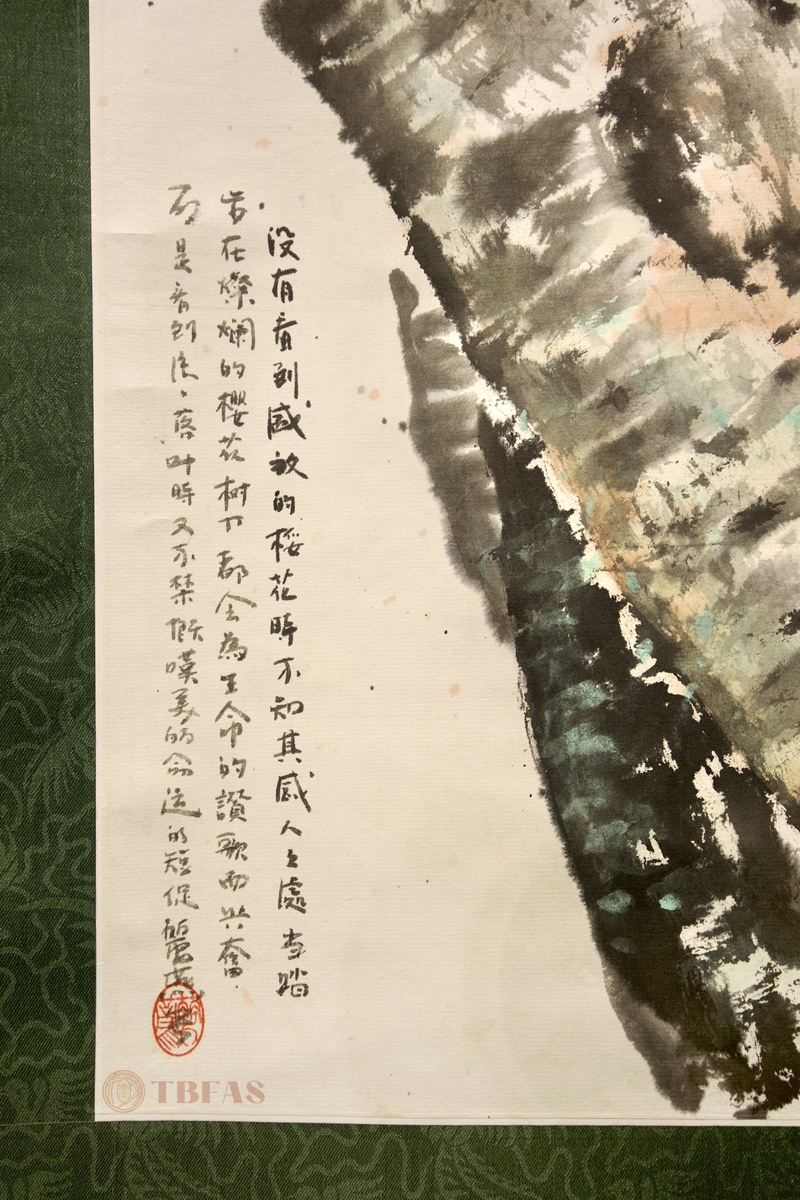 没有看到盛放的桜花時不知其感人之處当踏
步在燦爛的櫻花树下都会為生命的讚歌而兴奮.
而是看到落叶時又不禁慨嘆美的命运的短促
TBFAS